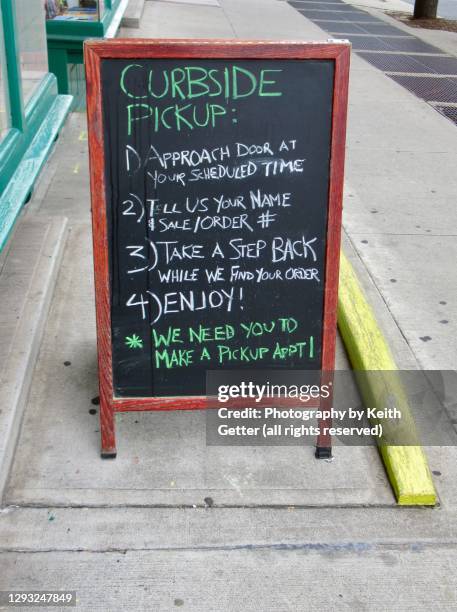 CURBSIDE
PICKUP:
1) APPROACH DOOR AT
YOUR SCHEDULED TIME
2) TELL US YOUR NAME
& SALE/ORDER #
3) TAKE A STEP BACK
WHILE WE FIND YOUR ORDER
4) ENJOY!
* WE NEED YOU TO
MAKE A PICKUP APPT!
gettyimages®
Photography by Keith
Getter (all rights reserved)
1293247849